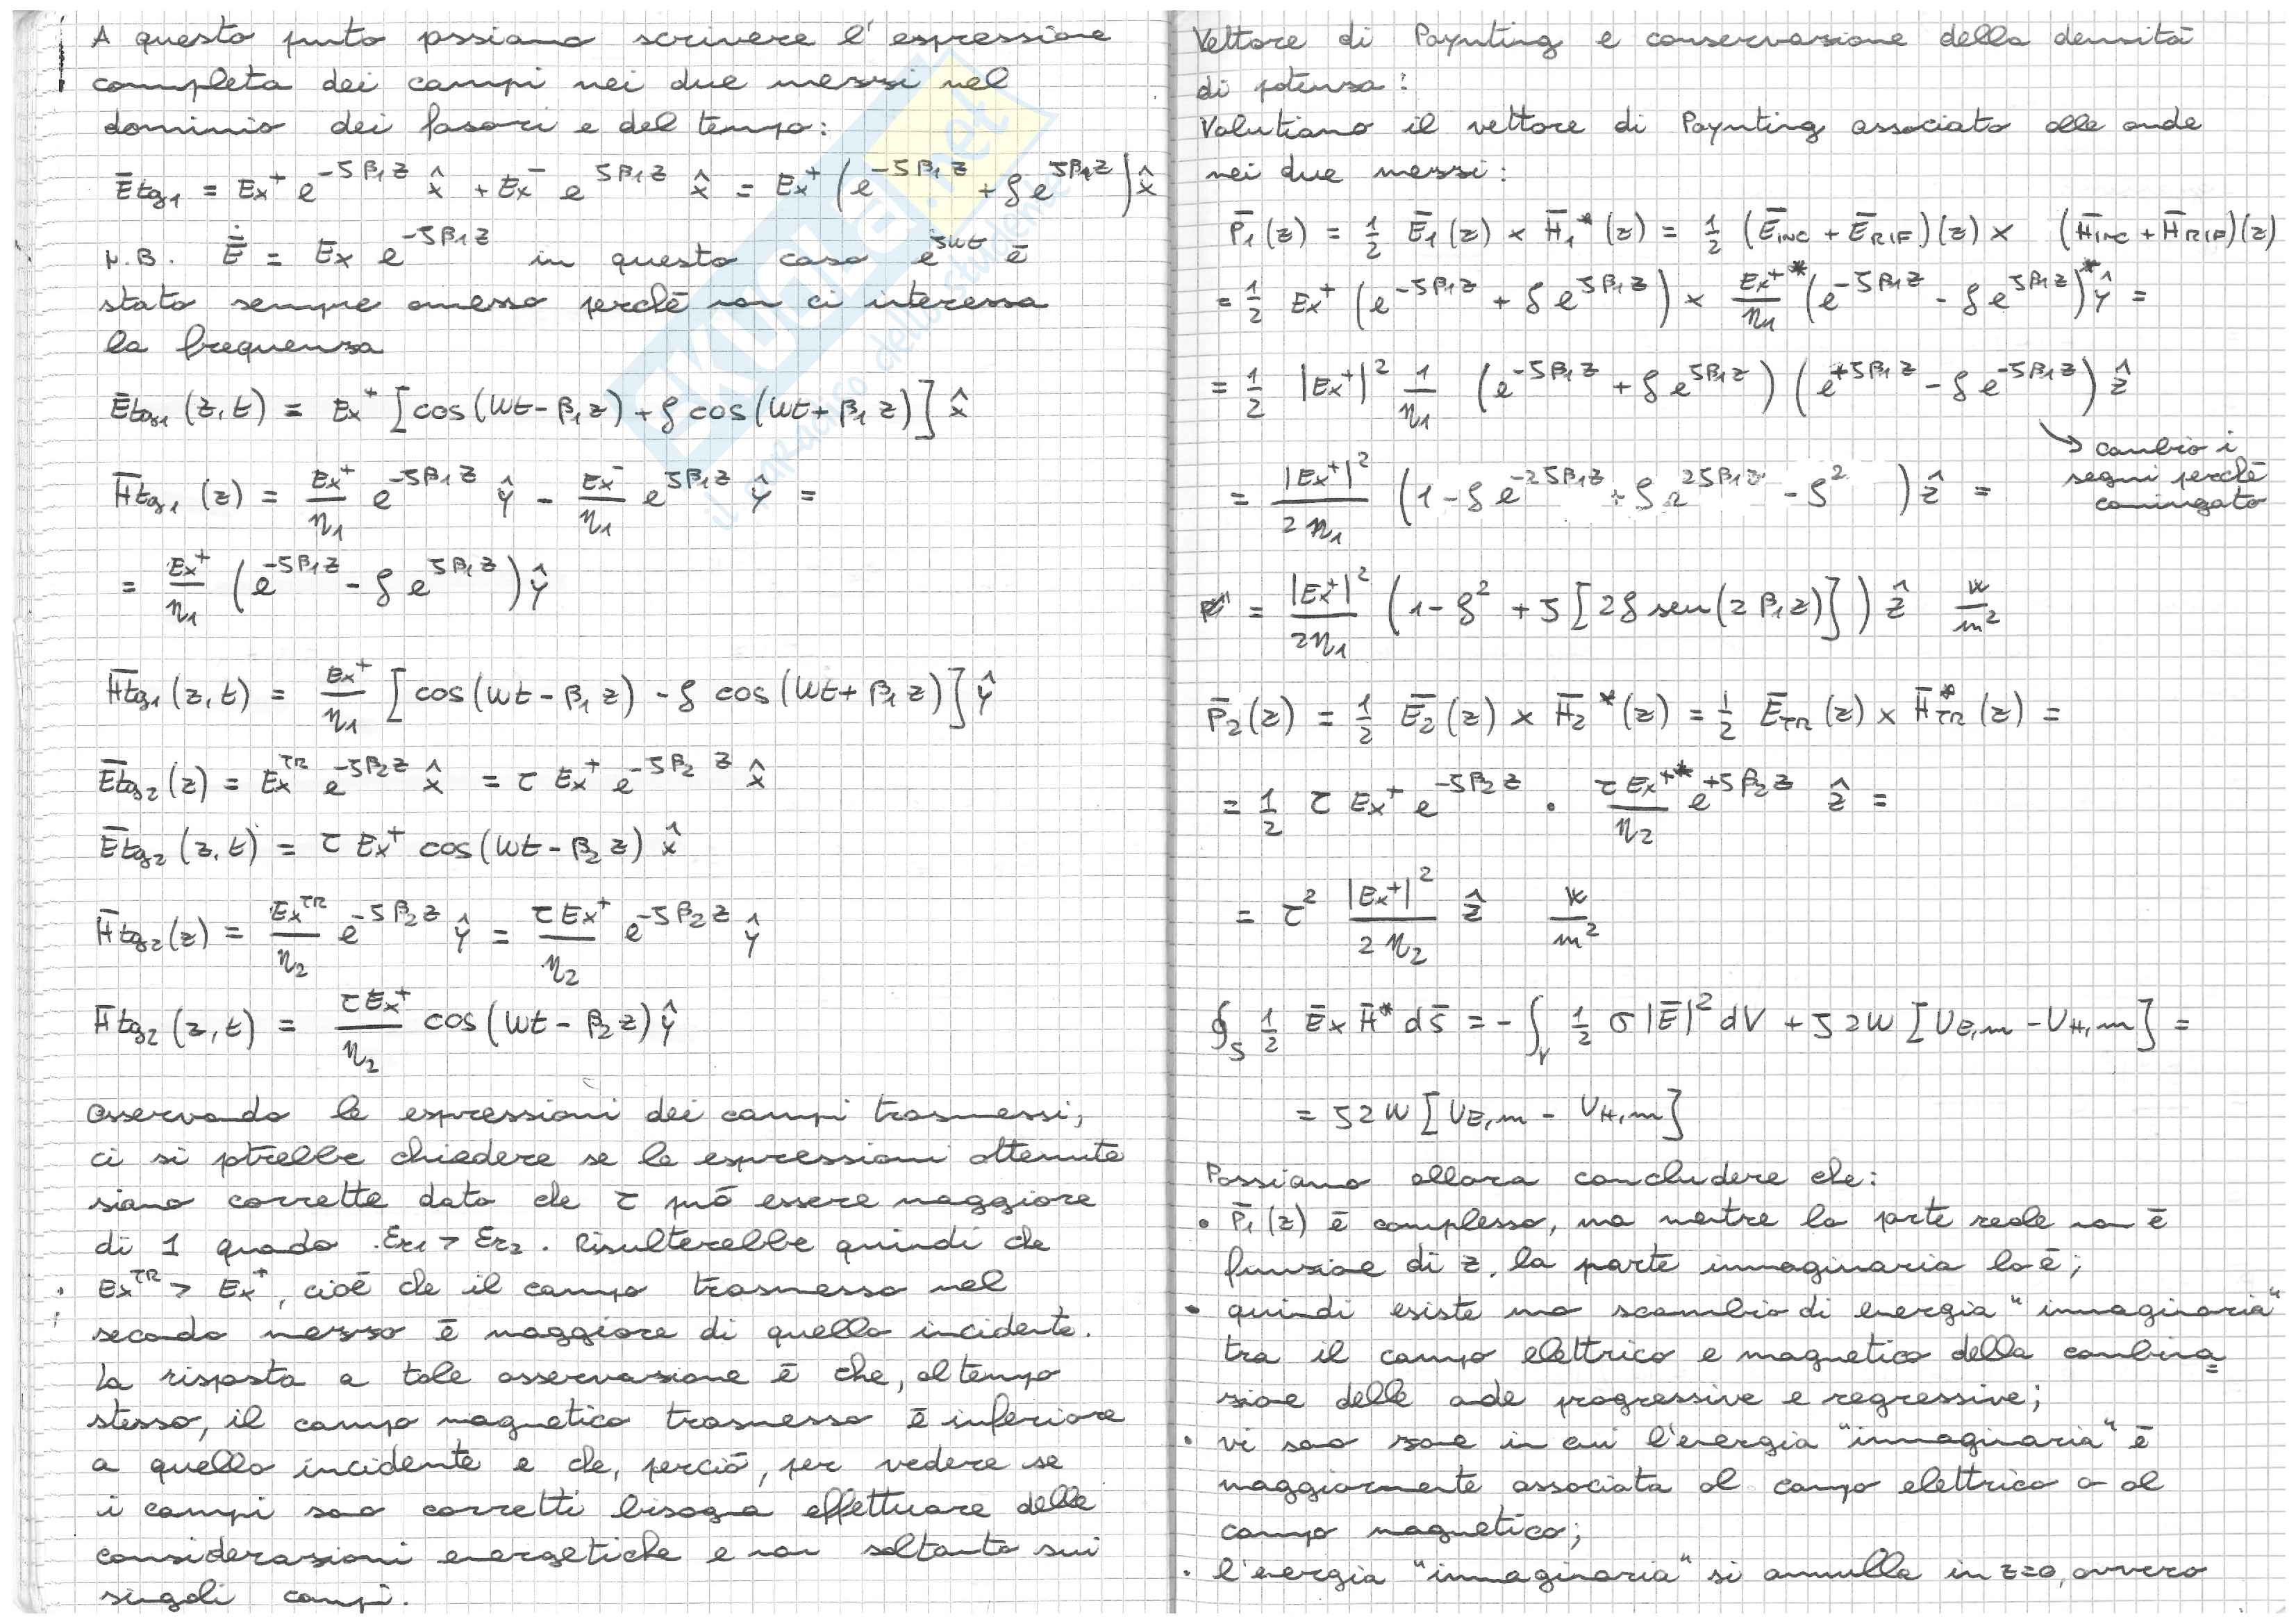 A questo punto possiamo scrivere l'espressione
completa dei campi nei due mezzi nel
dominio dei fasori e del tempo:
Ētg₁ = Ex⁺ e^(-jβ₁z) x̂ + Ex⁻ e^(jβ₁z) x̂ = Ex⁺ (e^(-jβ₁z) + ρ e^(jβ₁z)) x̂
N.B. Ē = Ex e^(-jβ₁z) in questo caso e^(jωt) è
stato sempre omesso perchè non ci interessa
la frequenza
Ētg₁ (z,t) = Ex⁺ [cos(ωt-β₁z) + ρ cos(ωt+β₁z)] x̂
H̄tg₁ (z) = Ex⁺/η₁ e^(-jβ₁z) ŷ - Ex⁻/η₁ e^(jβ₁z) ŷ =
= Ex⁺/η₁ (e^(-jβ₁z) - ρ e^(jβ₁z)) ŷ
H̄tg₁ (z,t) = Ex⁺/η₁ [cos(ωt-β₁z) - ρ cos(ωt+β₁z)] ŷ
Ētg₂ (z) = Ex^TR e^(-jβ₂z) x̂ = τ Ex⁺ e^(-jβ₂z) x̂
Ētg₂ (z,t) = τ Ex⁺ cos(ωt-β₂z) x̂
H̄tg₂ (z) = Ex^TR/η₂ e^(-jβ₂z) ŷ = τEx⁺/η₂ e^(-jβ₂z) ŷ
H̄tg₂ (z,t) = τEx⁺/η₂ cos(ωt-β₂z) ŷ
Osservando le espressioni dei campi trasmessi,
ci si potrebbe chiedere se le espressioni ottenute
siano corrette dato che τ può essere maggiore
di 1 quando εr₁ > εr₂. Risulterebbe quindi che
Ex^TR > Ex⁺, cioè che il campo trasmesso nel
secondo mezzo è maggiore di quello incidente.
La risposta a tale osservazione è che, al tempo
stesso, il campo magnetico trasmesso è inferiore
a quello incidente e che, perciò, per vedere se
i campi sono corretti bisogna effettuare delle
considerazioni energetiche e non soltanto sui
singoli campi.
Vettore di Poynting e conservazione della densità
di potenza:
Valutiamo il vettore di Poynting associato alle onde
nei due mezzi:
P̄₁(z) = 1/2 Ē₁(z) × H̄₁*(z) = 1/2 (Ē_INC + Ē_RIF)(z) × (H̄_INC + H̄_RIF)*(z)
= 1/2 Ex⁺ (e^(-jβ₁z) + ρ e^(jβ₁z)) × Ex⁺*/η₁ (e^(-jβ₁z) - ρ e^(jβ₁z))* ŷ =
= 1/2 |Ex⁺|² 1/η₁ (e^(-jβ₁z) + ρ e^(jβ₁z)) (e^(+jβ₁z) - ρ e^(-jβ₁z)) ẑ
→ cambio i
segni perchè
coniugato
= |Ex⁺|²/2η₁ (1 - ρ e^(-2jβ₁z) + ρ e^(2jβ₁z) - ρ²) ẑ =
= |Ex⁺|²/2η₁ (1 - ρ² + j [2ρ sen(2β₁z)]) ẑ W/m²
P̄₂(z) = 1/2 Ē₂(z) × H̄₂*(z) = 1/2 Ē_TR(z) × H̄_TR*(z) =
= 1/2 τ Ex⁺ e^(-jβ₂z) · τEx⁺*/η₂ e^(+jβ₂z) ẑ =
= τ² |Ex⁺|²/2η₂ ẑ W/m²
∮_S 1/2 Ē × H̄* ds̄ = -∫_V 1/2 σ|Ē|² dV + j2ω [U_E,m - U_H,m] =
= j2ω [U_E,m - U_H,m]
Possiamo allora concludere che:
• P̄₁(z) è complesso, ma mentre la parte reale non è
funzione di z, la parte immaginaria lo è;
• quindi esiste uno scambio di energia "immaginaria"
tra il campo elettrico e magnetico della combina
zione delle onde progressive e regressive;
• vi sono zone in cui l'energia "immaginaria" è
maggiormente associata al campo elettrico o al
campo magnetico;
• l'energia "immaginaria" si annulla in z=0, ovvero